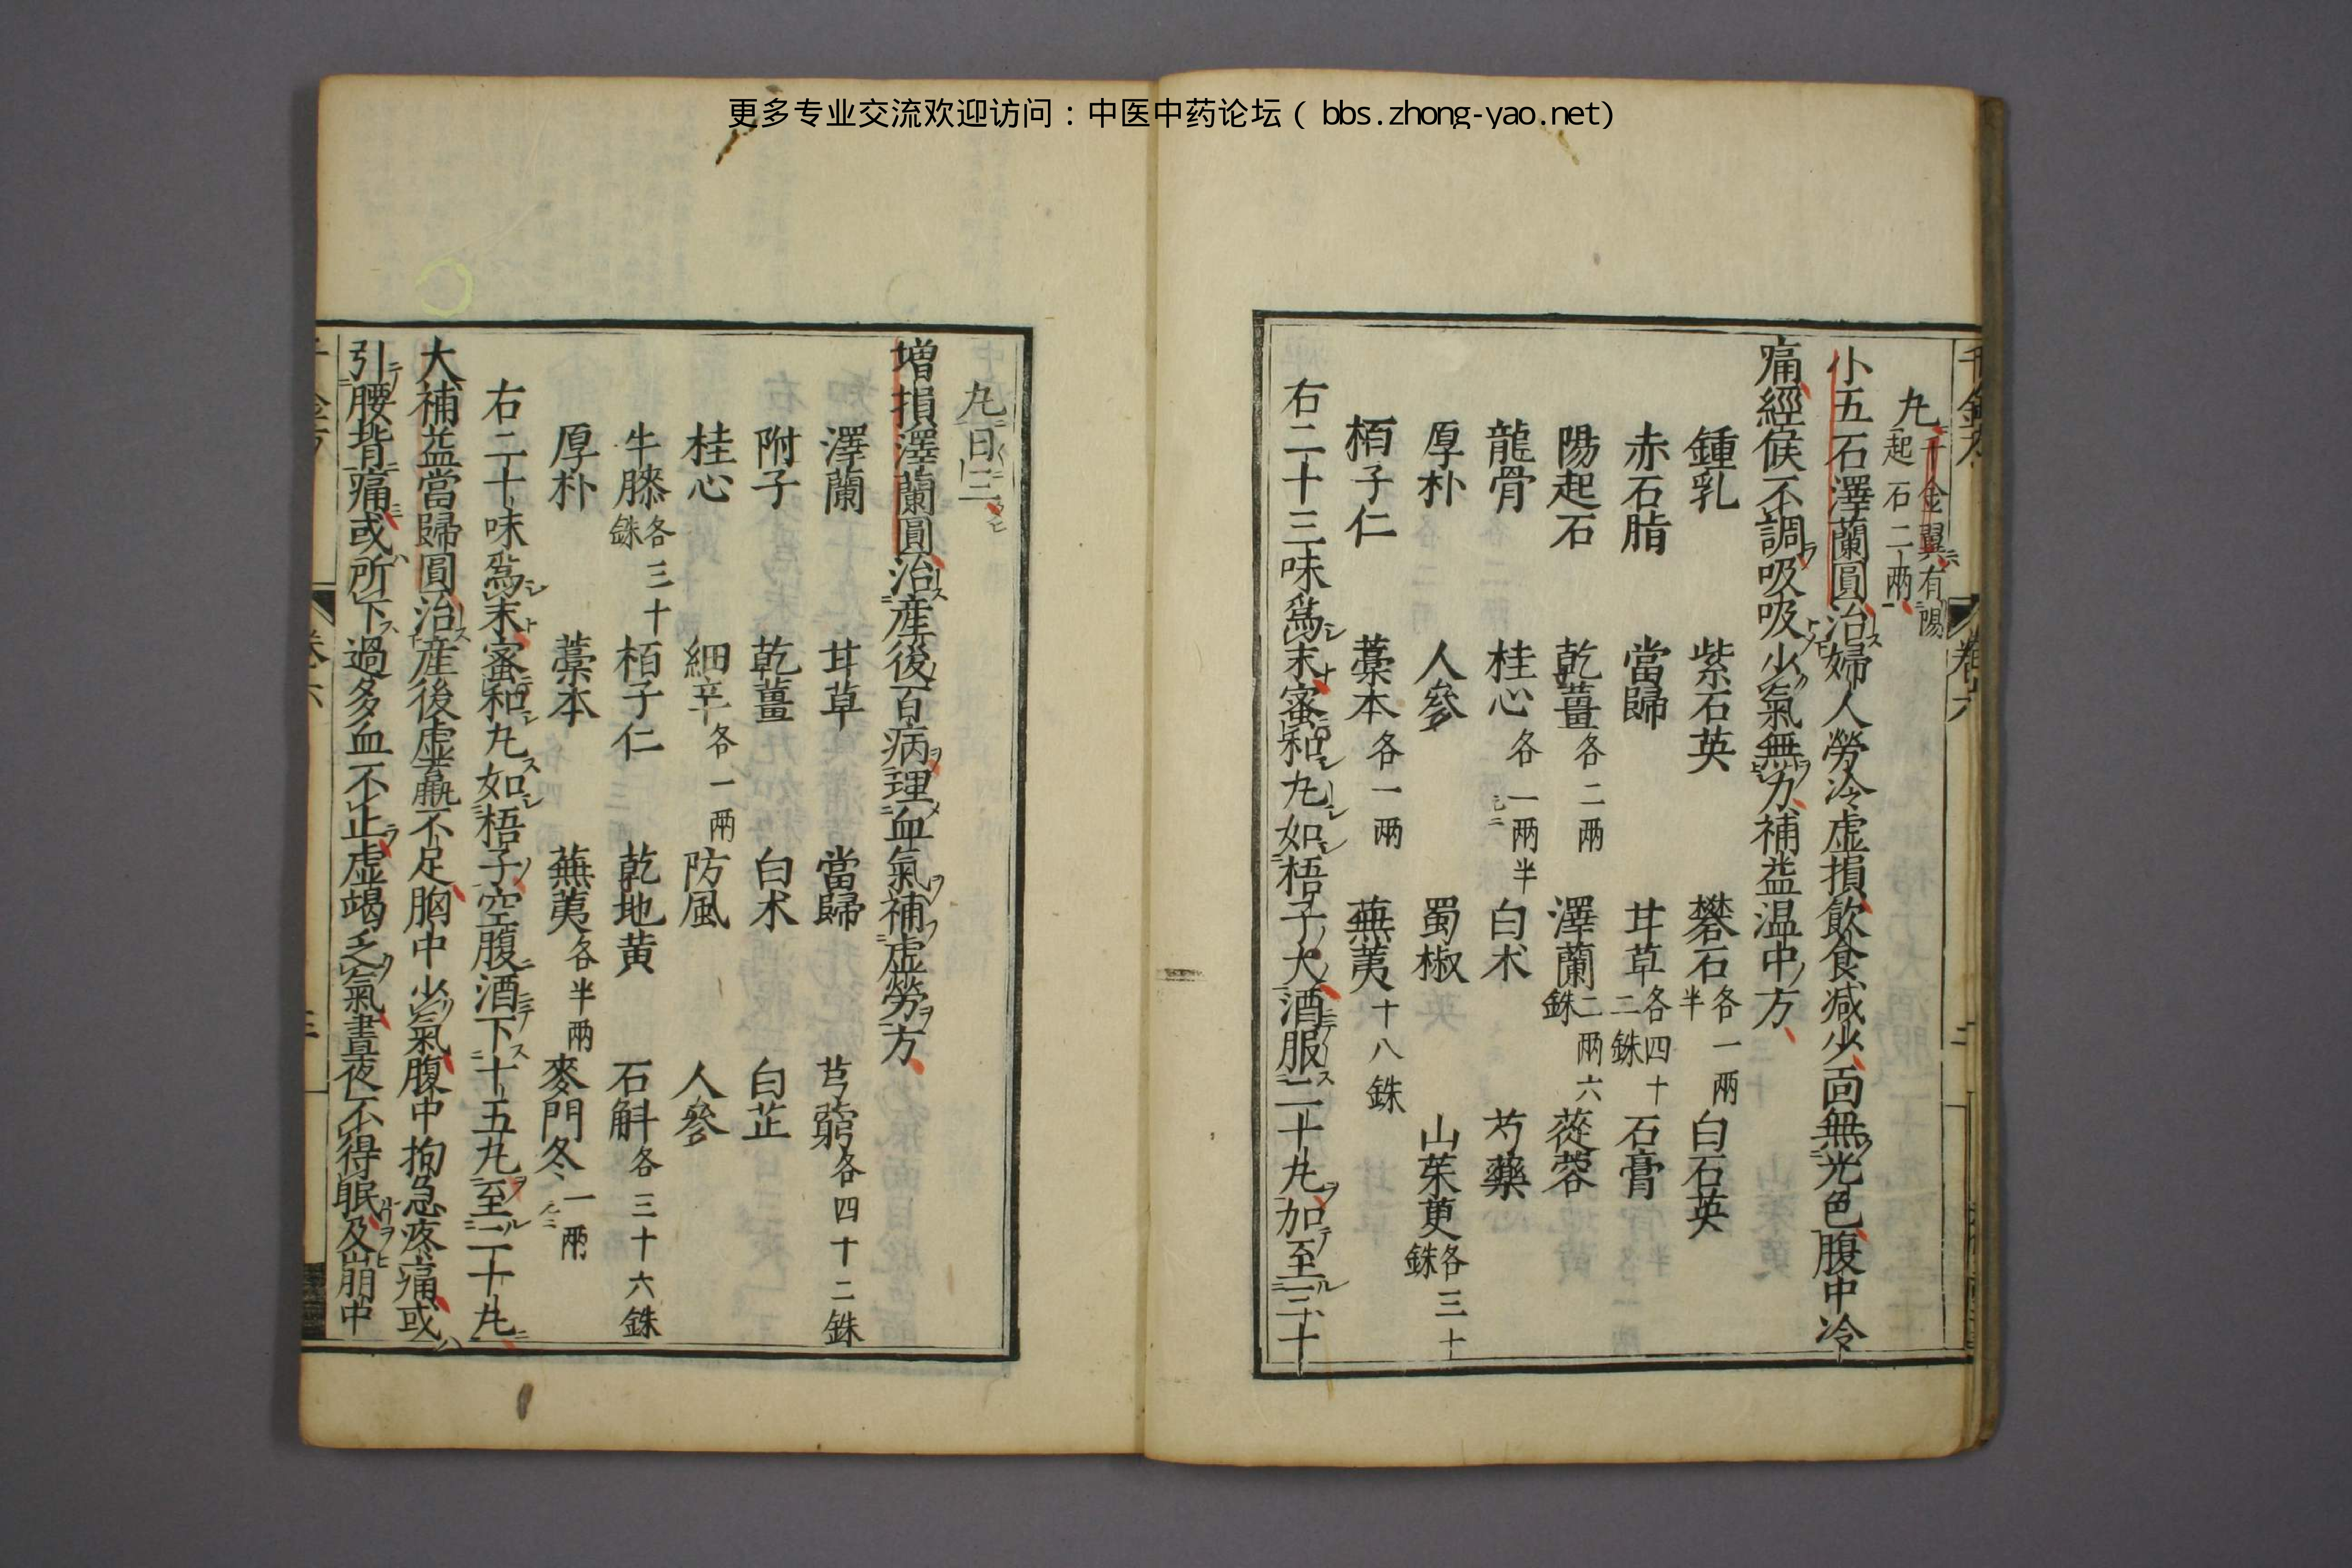 更多专业交流欢迎访问：中医中药论坛（bbs.zhong-yao.net)
卷六
丸千金翼有陽起石二兩
小五石澤蘭圓治婦人勞冷虚損飲食减少面無光色腹中冷
痛經候不調吸吸少氣無力補益温中方
鍾乳 紫石英 礬石各一兩半 白石英
赤石脂 當歸 甘草各四十二銖 石膏
陽起石 乾薑各二兩 澤蘭二兩六銖 蓯蓉
龍骨 桂心各一兩半 白朮 芍藥
厚朴 人參 蜀椒 山茱萸各三十銖
栢子仁 藁本各一兩 蕪荑十八銖
右二十三味爲末蜜和丸如梧子大酒服二十丸加至三十
丸日三
増損澤蘭圓治産後百病理血氣補虚勞方
澤蘭 甘草 當歸 芎藭各四十二銖
附子 乾薑 白朮 白芷
桂心 細辛各一兩 防風 人參
牛膝各三十銖 栢子仁 乾地黄 石斛各三十六銖
厚朴 藁本 蕪荑各半兩 麥門冬一兩
右二十味爲末蜜和丸如梧子空腹酒下十五丸至二十丸
大補益當歸圓治産後虚羸不足胸中少氣腹中拘急疼痛或
引腰背痛或所下過多血不止虚竭乏氣晝夜不得眠及崩中